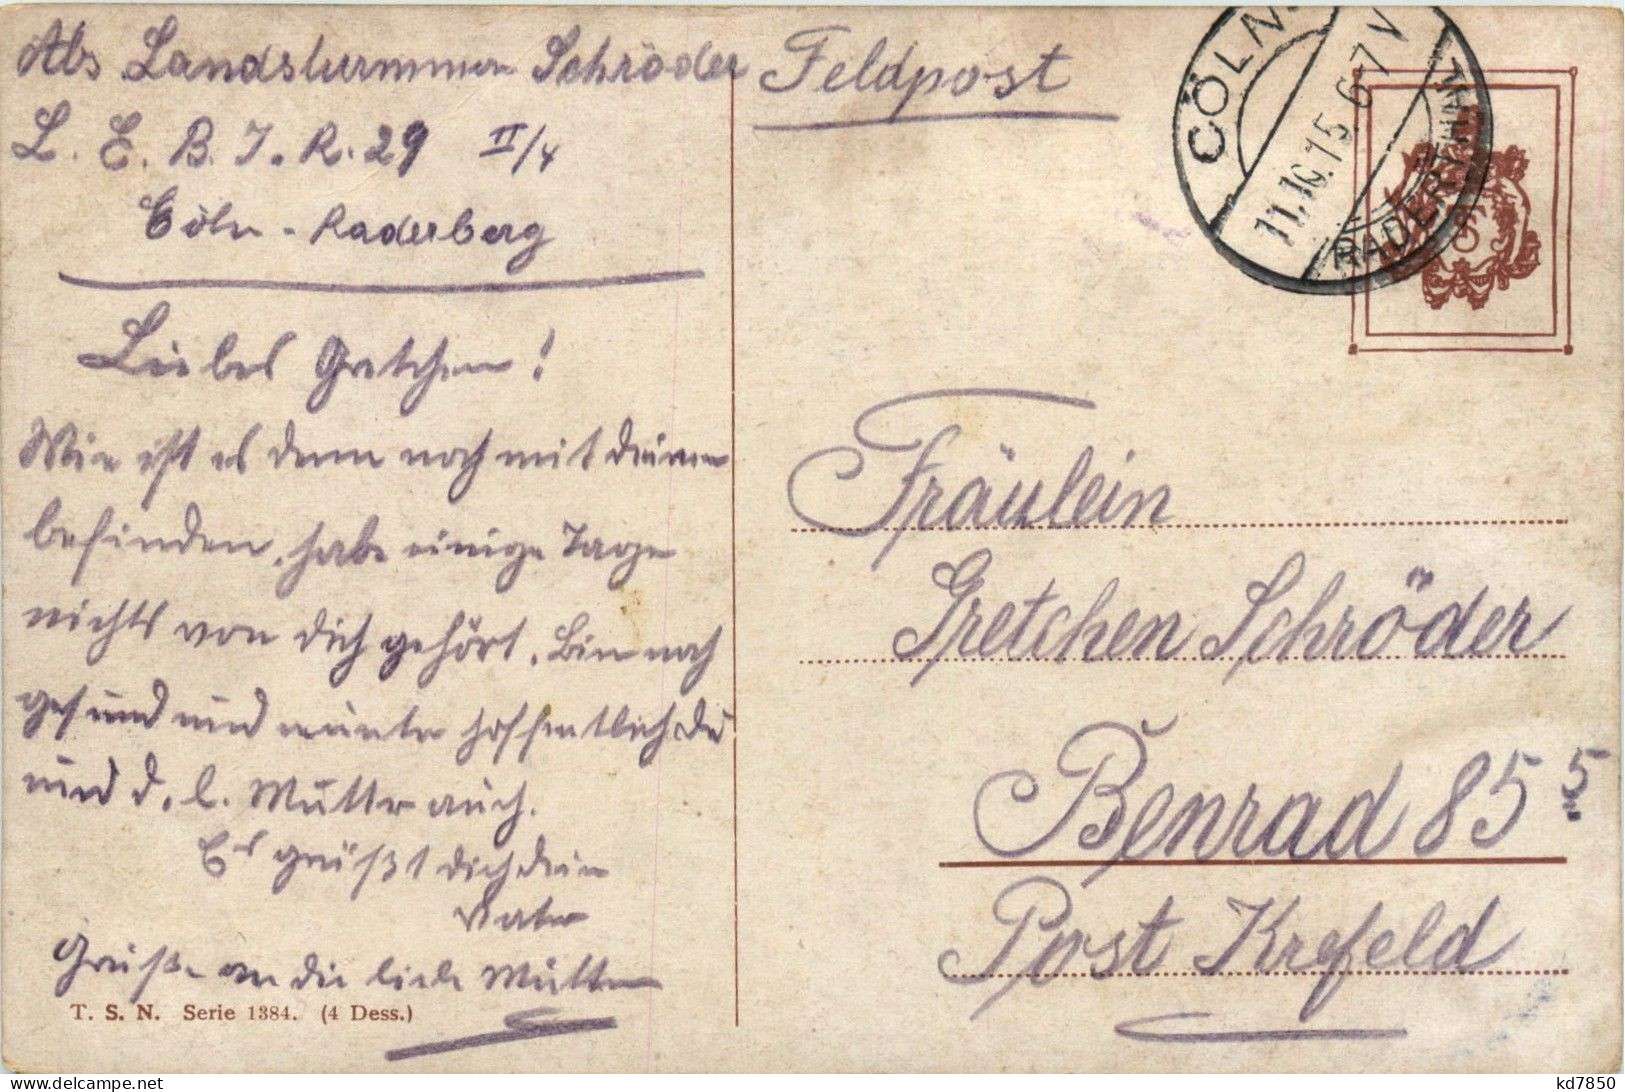 Abs Landsturmmann Schröder
L. E. B. J. R. 29 II/4
Cöln - Raderberg
Liebes Gretchen!
Wie ist es denn noch mit deinem
befinden, habe einige Tage
nichts von dich gehört. Bin noch
gesund und munter hoffentlich Du
und d. l. Mutter auch.
Es grüßt dich dein
Vater
Grüße an die liebe Mutter
T. S. N. Serie 1384. (4 Dess.)
Feldpost
CÖLN-
11.10.15. 6-7 V
RADERTHAL
Fräulein
Gretchen Schröder
Benrad 85 5
Post Krefeld
kd7850